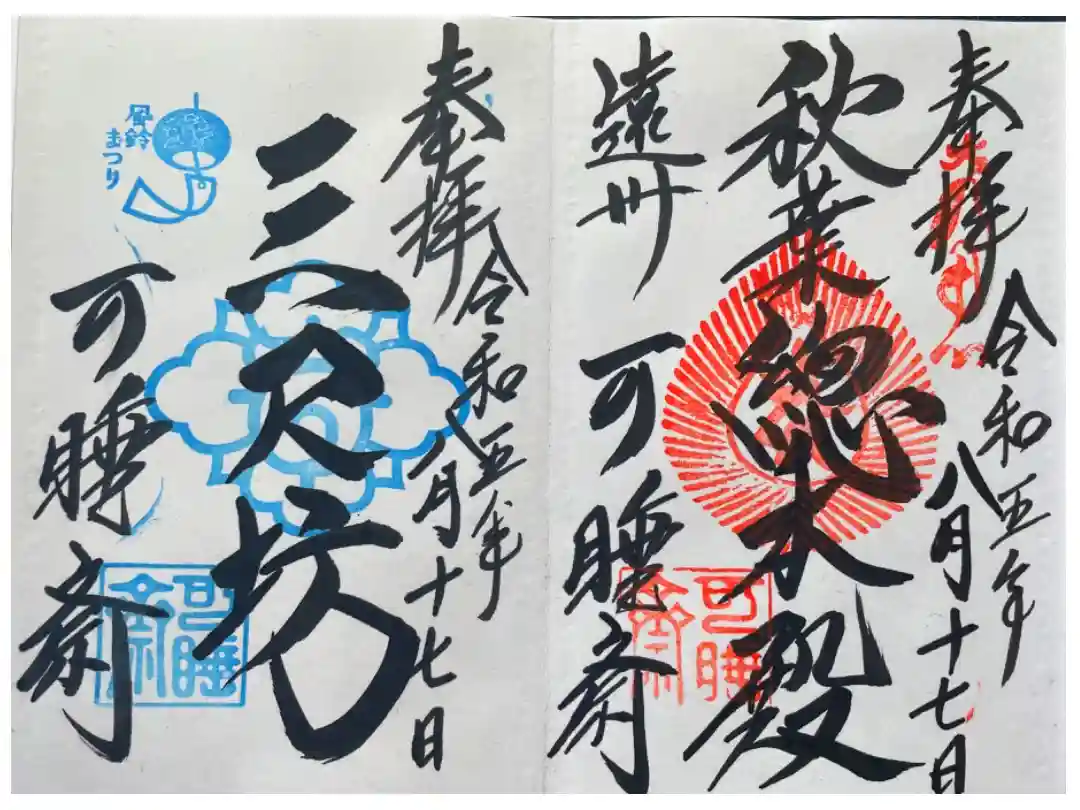 奉拝
令和五年
八月十七日
秋葉總本殿
遠州
可睡斎
可睡
斎
奉拝
令和五年
八月十七日
三尺坊
風鈴
まつり
可睡斎
可睡
斎